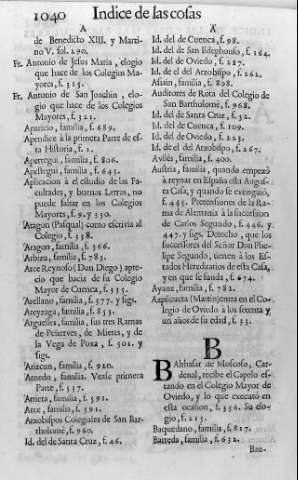 1040 Indice de las cosas
A
de Benedicto XIII. y Marti-
no V. fol. 290.
Fr. Antonio de Jesus Maria, elogio
que hace de los Colegios Ma-
yores, f. 315.
Fr. Antonio de San Joachin, elo-
gio que hace de los Colegios
Mayores, f. 321.
Aparicio, familia, f. 689.
Apendice à la primera Parte de es-
ta Historia, f. 1.
Aperregui, familia, f. 806.
Apestegui, familia, f. 643.
Aplicacion à el estudio de las Fa-
cultades, y buenas Letras, no
puede faltar en los Colegios
Mayores, f. 9. y 330.
Aragon (Pasqual) como escrivia al
Colegio, f. 338.
Aragon, familia, f. 366.
Arbizu, familia, f. 783.
Arce Reynoso (Don Diego) apre-
cio que hacia de su Colegio
Mayor de Cuenca, f. 335.
Arellano, familia, f. 577. y sigs.
Areyzaga, familia, f. 853.
Arguelles, familia, sus tres Ramas
de Peñerves, de Mieres, y de
la Vega de Poxa, f. 501. y
sigs.
Arizcun, familia, f. 920.
Arnedo, familia. Vease primera
Parte, f. 537.
Arrieta, familia, f. 592.
Arce, familia, f. 591.
Arzobispos Colegiales de San Bar-
tholomè, f. 960.
Id. del de Santa Cruz, f. 46.
A
Id. del de Cuenca, f. 98.
Id. del de San Ildephonso, f. 164.
Id. del de Oviedo, f. 217.
Id. de el del Arzobispo, f. 262.
Asiain, familia, f. 808.
Auditores de Rota del Colegio de
San Bartholomè, f. 968.
Id. del de Santa Cruz, f. 52.
Id. del de Cuenca, f. 109.
Id. del de Oviedo, f. 223.
Id. de el del Arzobispo, f. 267.
Avilès, familia, f. 400.
Austria, familia, quando empezò
à reynar en España esta Augus-
ta Casa, y quando se extinguiò,
f. 445. Pretensiones de la Ra-
ma de Alemania à la succession
de Carlos Segundo, f. 446. y
447. y sigs. Derecho, que los
successores del Señor Don Phe-
lipe Segundo, tienen à los Es-
tados Hereditarios de esta Casa,
y en què se funda, f. 674.
Ayanz, familia, f. 782.
Azpilcueta (Martin) entra en el Co-
legio de Oviedo à los setenta y
un años de su edad, f. 33.
B
Balthasar de Moscoso, Car-
denal, recibe el Capelo es-
tando en el Colegio Mayor de
Oviedo, y lo que executò en
esta ocasion, f. 336. Su elo-
gio, f. 215.
Baquedano, familia, f. 827.
Barreda, familia, f. 652.
Bau-